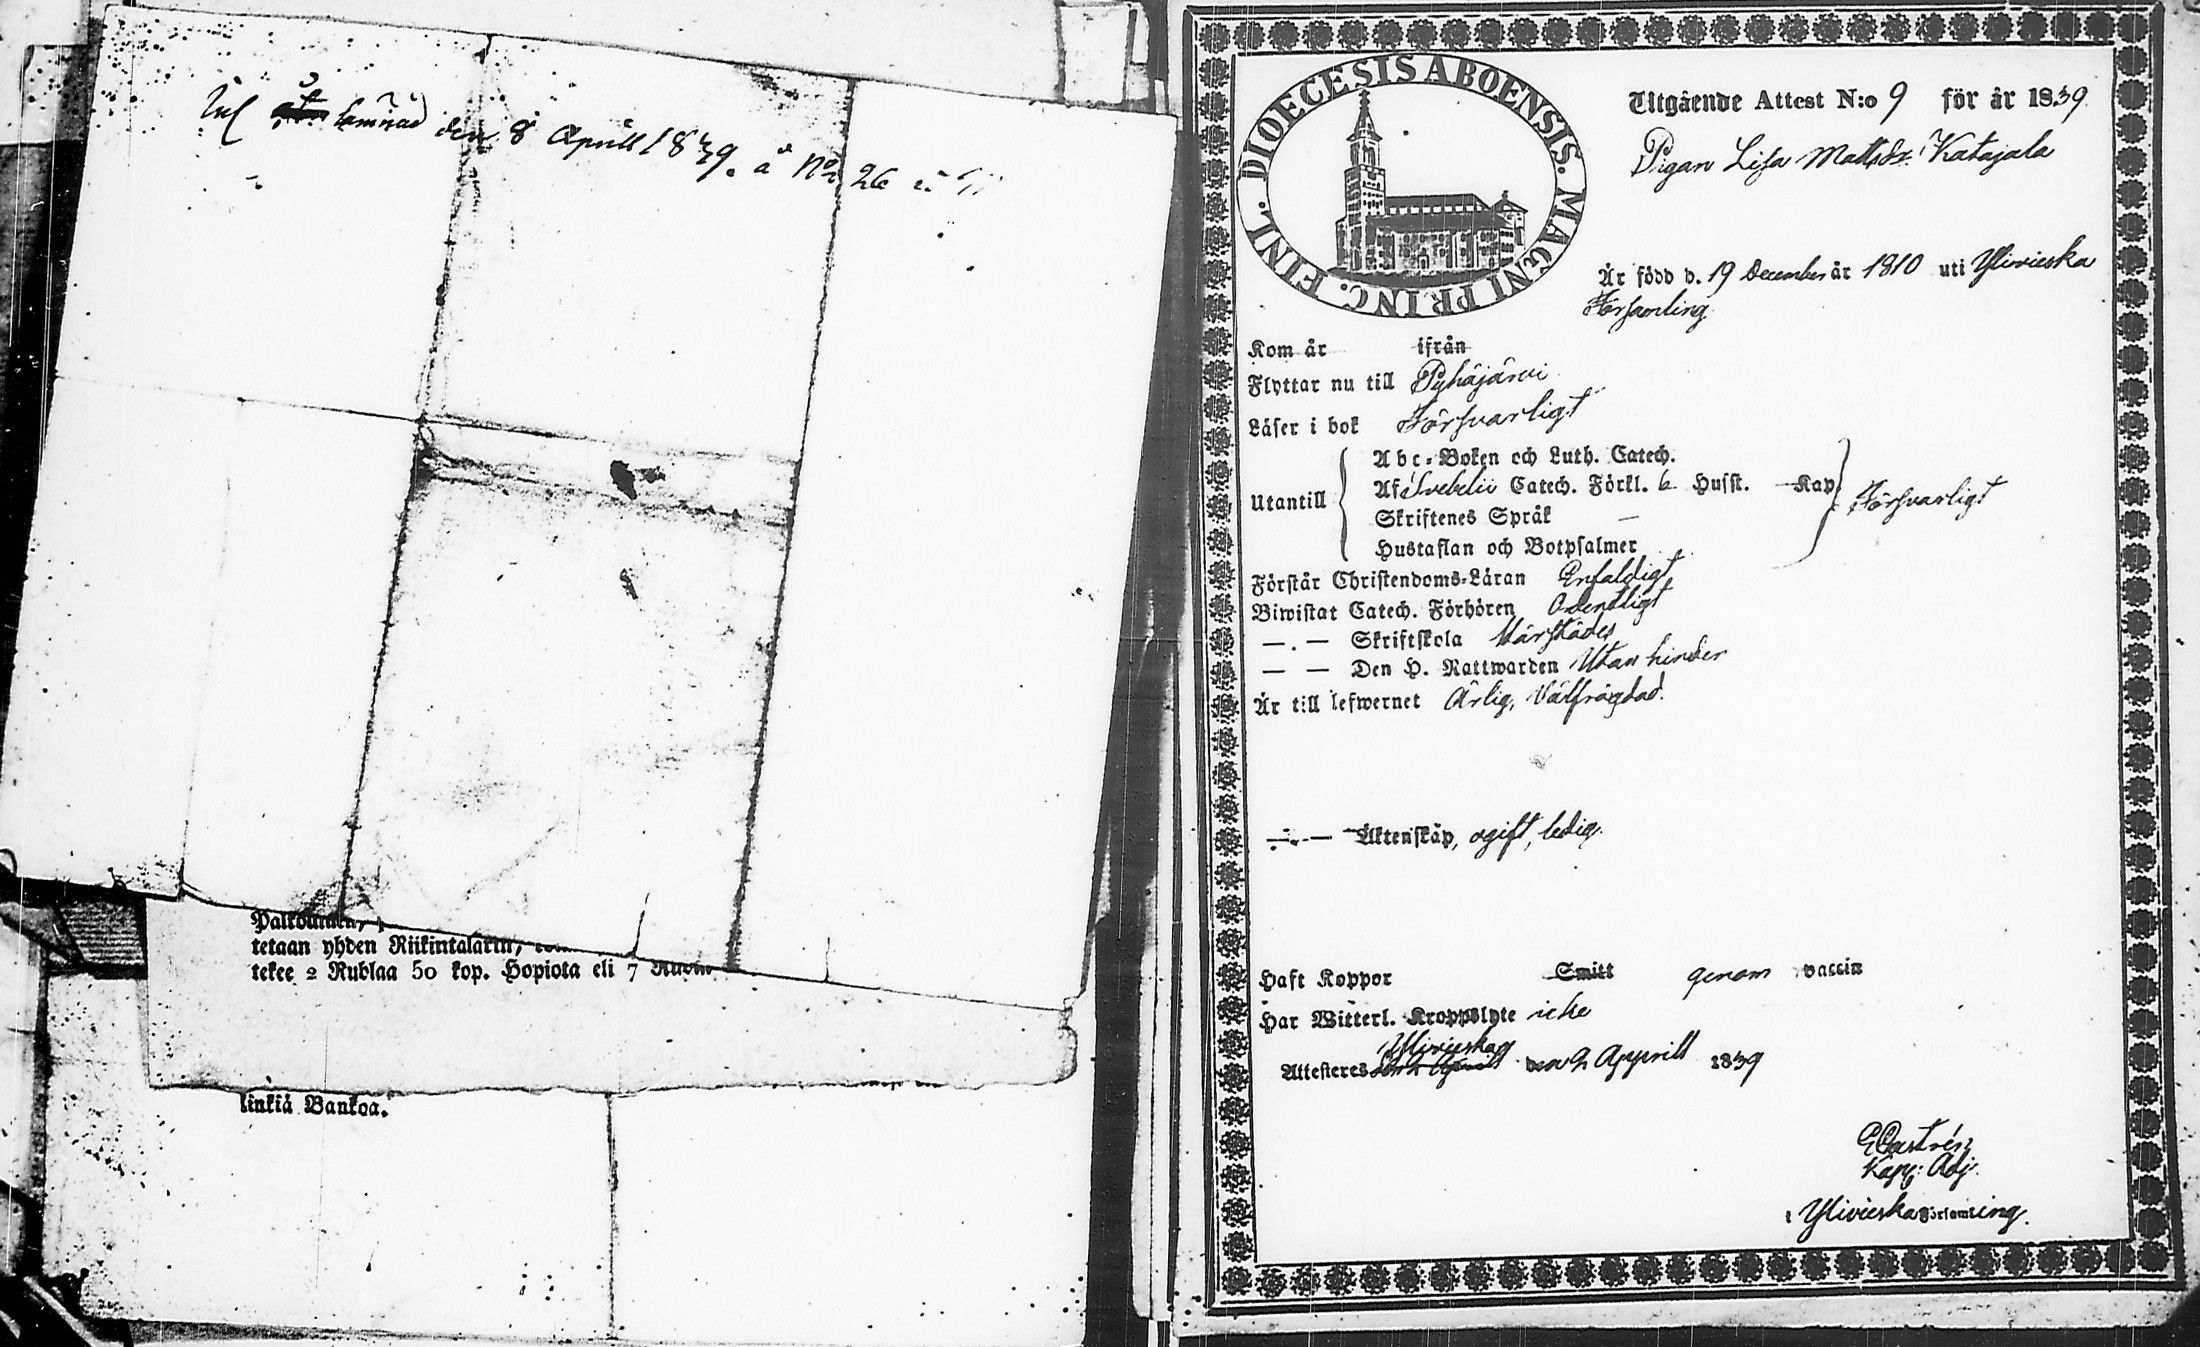 lemnad den 8 April 1839. å No 26
Palkollinen,
tetaan yhden Riikintalarin,
tekee 2 Rublaa 50 kop. Hopiota eli 7
linkiä Bankoa.
DIOECESIS ABOENSIS. MAGNI PRINC. FINL.
Utgående Attest N:o 9 för år 1839
Pigan Lisa Mattsdr. Katajala
Är född d. 19 December år 1810 uti Ylivieska
Församling
Kom år ifrån
Flyttar nu till Pyhäjärvi
Läser i bok Försvarligt
Utantill
Abc-Boken och Luth. Catech.
Af Svebelii Catech. Förkl. 6 Husst. — Kap.
Skriftenes Språk —
Hustaflan och Botpsalmer
Försvarligt
Förstår Christendoms-Läran Enfaldigt
Biwistat Catech. Förhören Ordentligt
—.— Skriftskola Härstädes
— — Den H. Nattwarden Utan hinder
Är till lefwernet Ärlig, Välfrägdad.
—.— Äktenskap, ogift, ledig.
Haft Koppor Smitt genom vaccin
Har Witterl. Kroppslyte icke
Ylivieska
Attesteres den 2 Apprill 1839
E Castrén
Kapp: Adj.
i Ylivieska Församling.